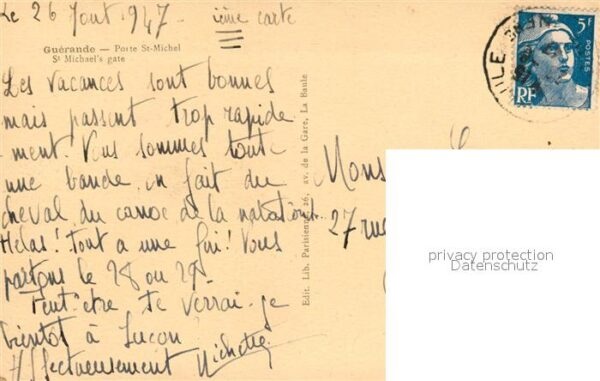 Le 26 Aout 1947 ième carte
Guérande — Porte St-Michel
St Michael's gate
Les vacances sont bonnes
mais passent trop rapide
ment. Nous sommes toute
une bande, on fait du
cheval du canoc de la natation.
Hélas! Tout a une fin! Nous
partons le 28 ou 29.
Peut-être te verrai-je
bientôt à Luçon
Affectueusement Michette
Edit. Lib. Parisienne, 26, av. de la Gare, La Baule
Mons
27 rue
5F
POSTES
RF
privacy protection
Datenschutz